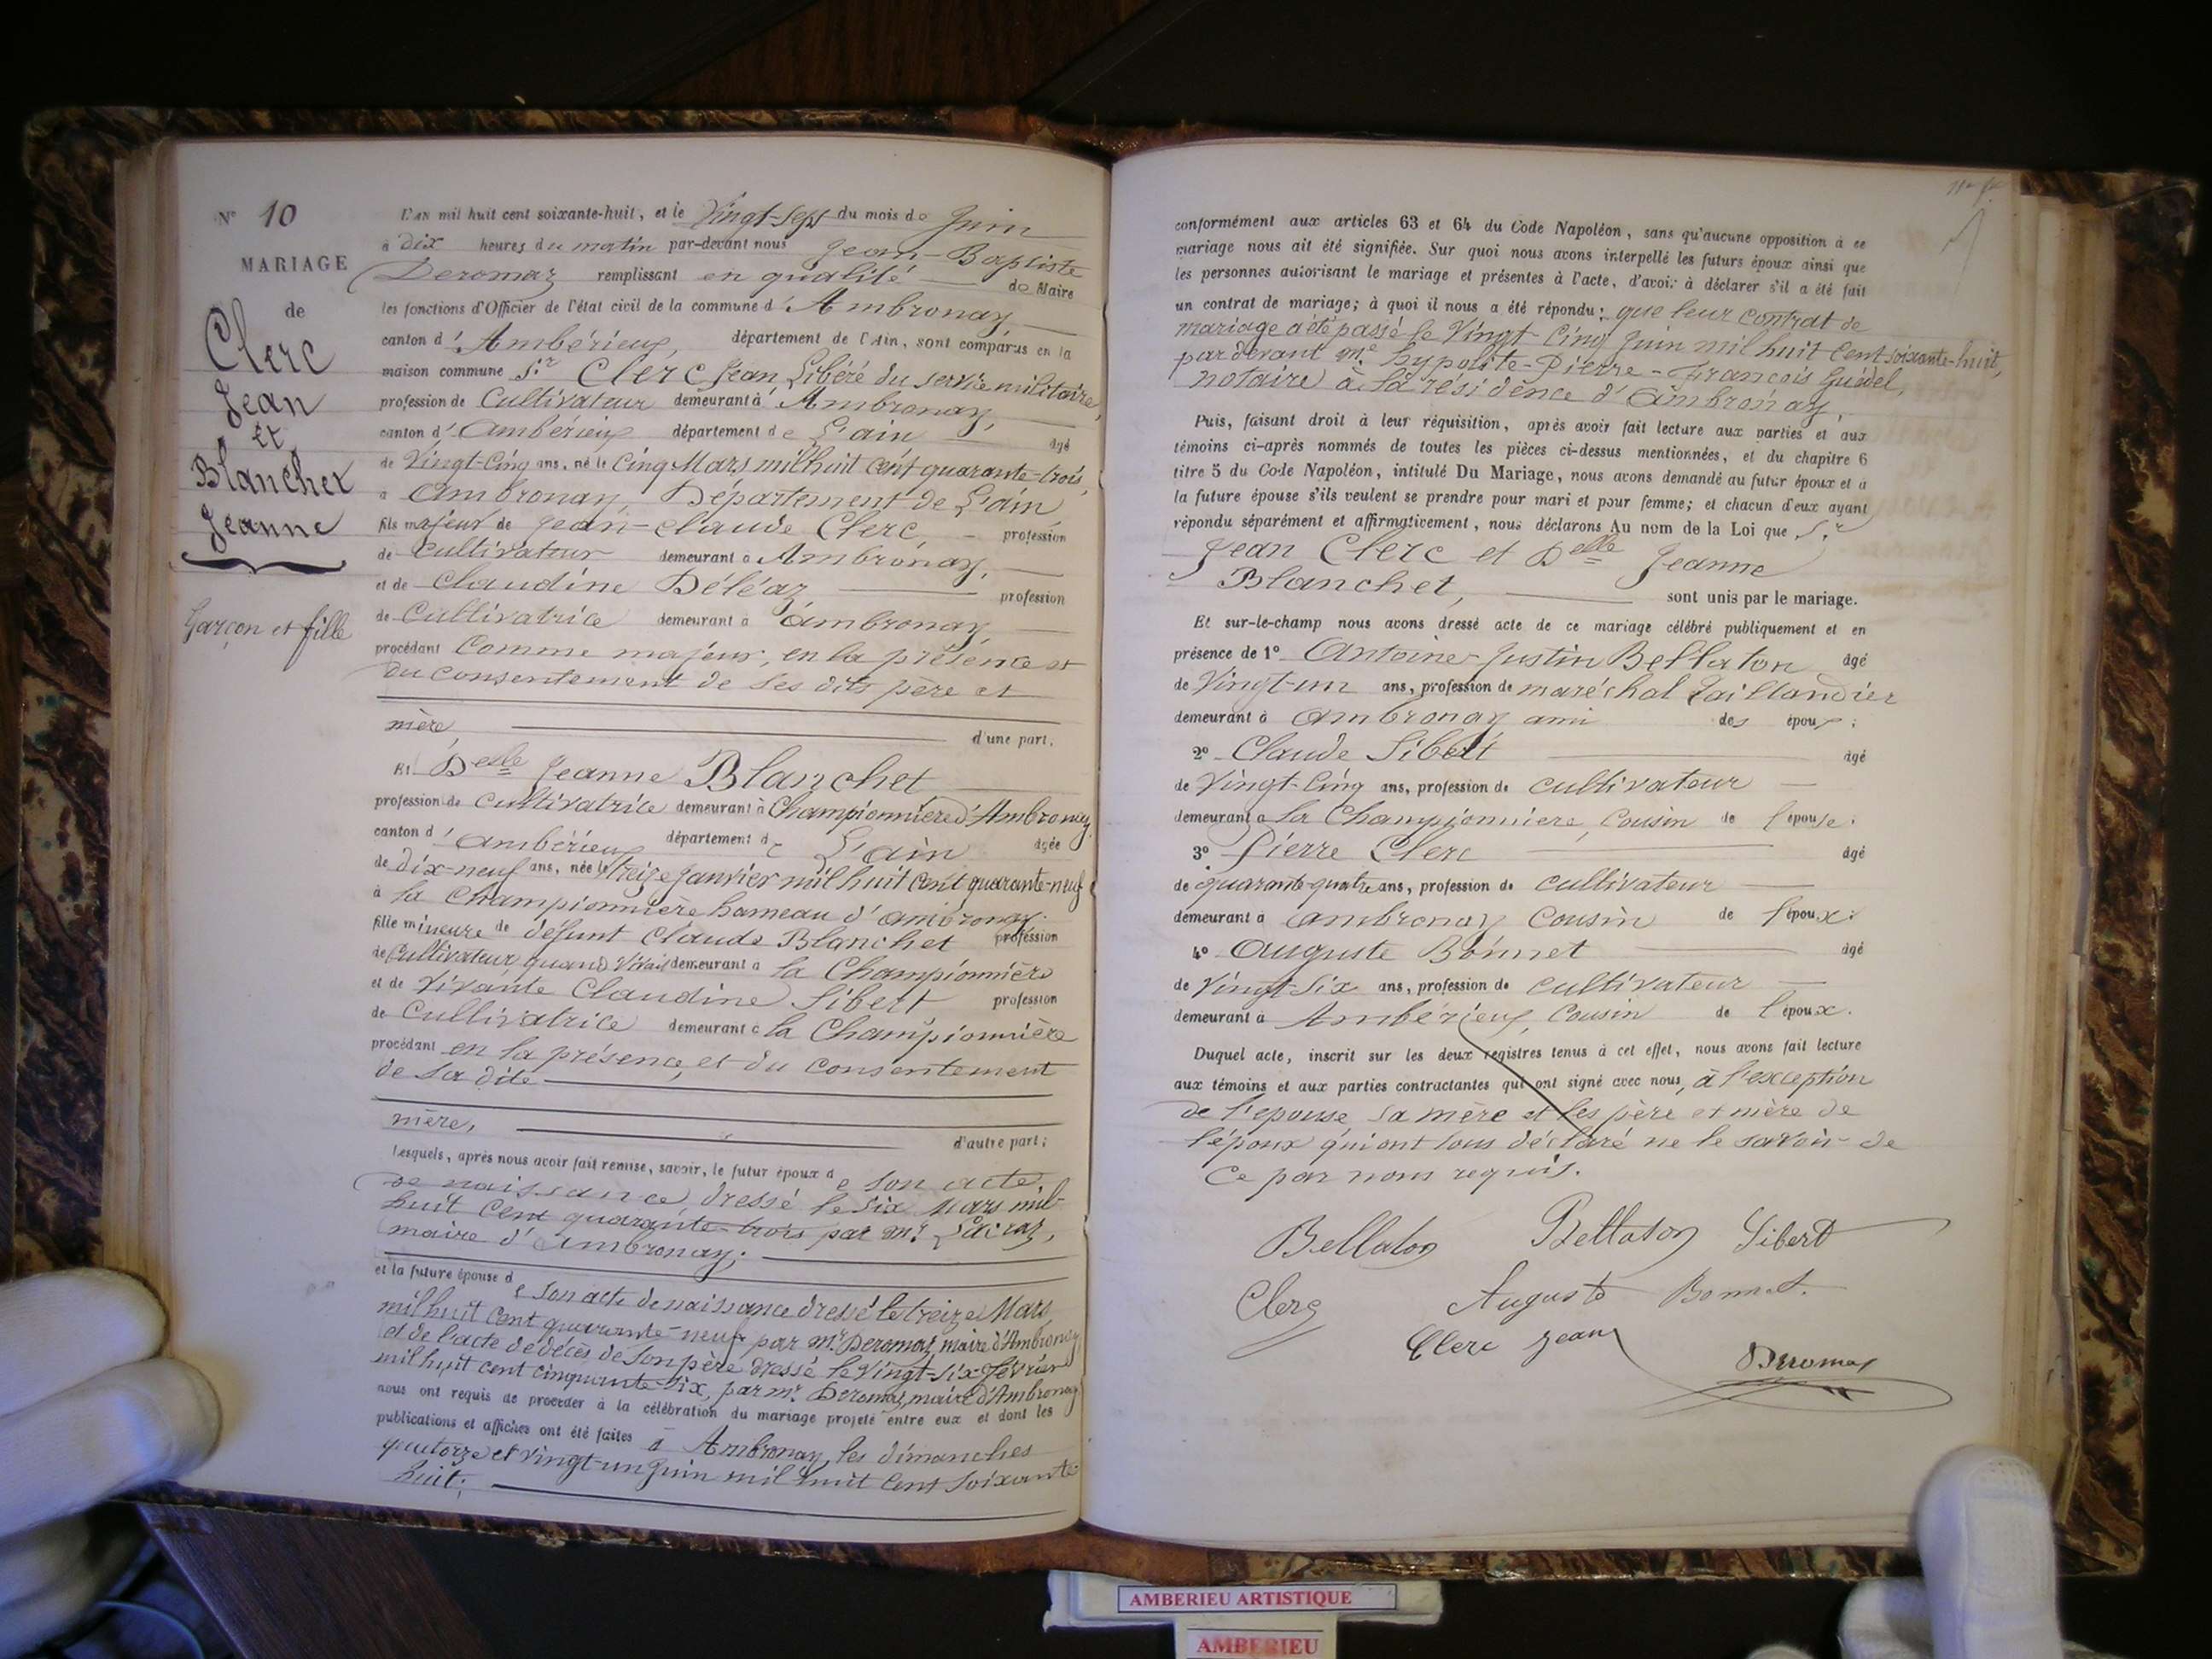 N° 10
MARIAGE
de
Clerc
Jean
et
Blanchet
Jeanne
Garçon et fille
L'an mil huit cent soixante-huit, et le Vingt-sept du mois de Juin
à dix heures du matin par-devant nous Jean-Baptiste
Deromaz remplissant en qualité de Maire
les fonctions d'Officier de l'état civil de la commune d'Ambronay,
canton d'Ambérieux, département de l'Ain, sont comparus en la
maison commune Sr Clerc Jean Libéré du service militaire,
profession de Cultivateur demeurant à Ambronay,
canton d'Ambérieux département de L'ain âgé
de Vingt-Cinq ans, né le Cinq Mars mil huit cent quarante-trois,
à Ambronay, Département de L'ain
fils majeur de Jean-Claude Clerc, profession
de Cultivateur demeurant à Ambronay,
et de Claudine Déléaz profession
de Cultivatrice demeurant à Ambronay,
procédant Comme majeur, en la présence et
du consentement de ses dits père et
mère, d'une part.
Et Delle Jeanne Blanchet
profession de Cultivatrice demeurant à Championnière d'Ambronay
canton d'ambérieux département de L'ain âgée
de dix-neuf ans, née le treize janvier mil huit cent quarante-neuf
à la Championnière hameau d'ambronay.
fille mineure de défunt Claude Blanchet profession
de Cultivateur quand vivait demeurant à la Championnière
et de vivante Claudine Sibert profession
de Cultivatrice demeurant à la Championnière
procédant en la présence, et du consentement
de sa dite
mère, d'autre part;
Lesquels, après nous avoir fait remise, savoir, le futur époux de son acte
de naissance, dressé le six Mars mil
huit Cent quarante-trois par mr
maire d'Ambronay;
et la future épouse de son acte de naissance dressé le treize Mars
mil huit Cent quarante-neuf par mr Deromaz maire d'Ambronay
et de l'acte de décès de son père dressé le Vingt-six février
mil huit cent cinquante six, par mr Deromaz, maire d'Ambronay
nous ont requis de procéder à la célébration du mariage projeté entre eux et dont les
publications et affiches ont été faites à Ambronay, les dimanches
quatorze et vingt-un Juin mil huit Cent Soixante
huit;
conformément aux articles 63 et 64 du Code Napoléon, sans qu'aucune opposition à ce
mariage nous ait été signifiée. Sur quoi nous avons interpellé les futurs époux ainsi que
les personnes autorisant le mariage et présentes à l'acte, d'avoir à déclarer s'il a été fait
un contrat de mariage; à quoi il nous a été répondu: que leur contrat de
mariage a été passé le Vingt-Cinq Juin mil huit Cent soixante-huit,
par devant me hypolite-Pierre-François Guédel,
notaire à la résidence d'Ambronay,
Puis, faisant droit à leur réquisition, après avoir fait lecture aux parties et aux
témoins ci-après nommés de toutes les pièces ci-dessus mentionnées, et du chapitre 6
titre 5 du Code Napoléon, intitulé Du Mariage, nous avons demandé au futur époux et à
la future épouse s'ils veulent se prendre pour mari et pour femme; et chacun d'eux ayant
répondu séparément et affirmativement, nous déclarons Au nom de la Loi que Sr
Jean Clerc et Delle Jeanne
Blanchet, sont unis par le mariage.
Et sur-le-champ nous avons dressé acte de ce mariage célébré publiquement et en
présence de 1° Antoine-Justin Bellaton âgé
de Vingt-un ans, profession de maréchal taillandier
demeurant à Ambronay ami des époux;
2° Claude Sibert âgé
de Vingt-Cinq ans, profession de cultivateur
demeurant à la Championniere Cousin de l'épouse.
3° Pierre Clerc âgé
de quarante-quatre ans, profession de cultivateur
demeurant à ambronay Cousin de l'époux.
4° Auguste Bonnet âgé
de Vingt-Six ans, profession de cultivateur
demeurant à Ambérieux, Cousin de l'époux.
Duquel acte, inscrit sur les deux registres tenus à cet effet, nous avons fait lecture
aux témoins et aux parties contractantes qui ont signé avec nous, à l'exception
de l'epouse sa mère et les père et mère de
l'époux qui ont tous déclaré ne le savoir de
Ce par nous requis.
Bellaton Bellaton Sibert
Clerc Auguste Bonnet.
Clerc Jean
Deromaz
AMBERIEU ARTISTIQUE
AMBERIEU